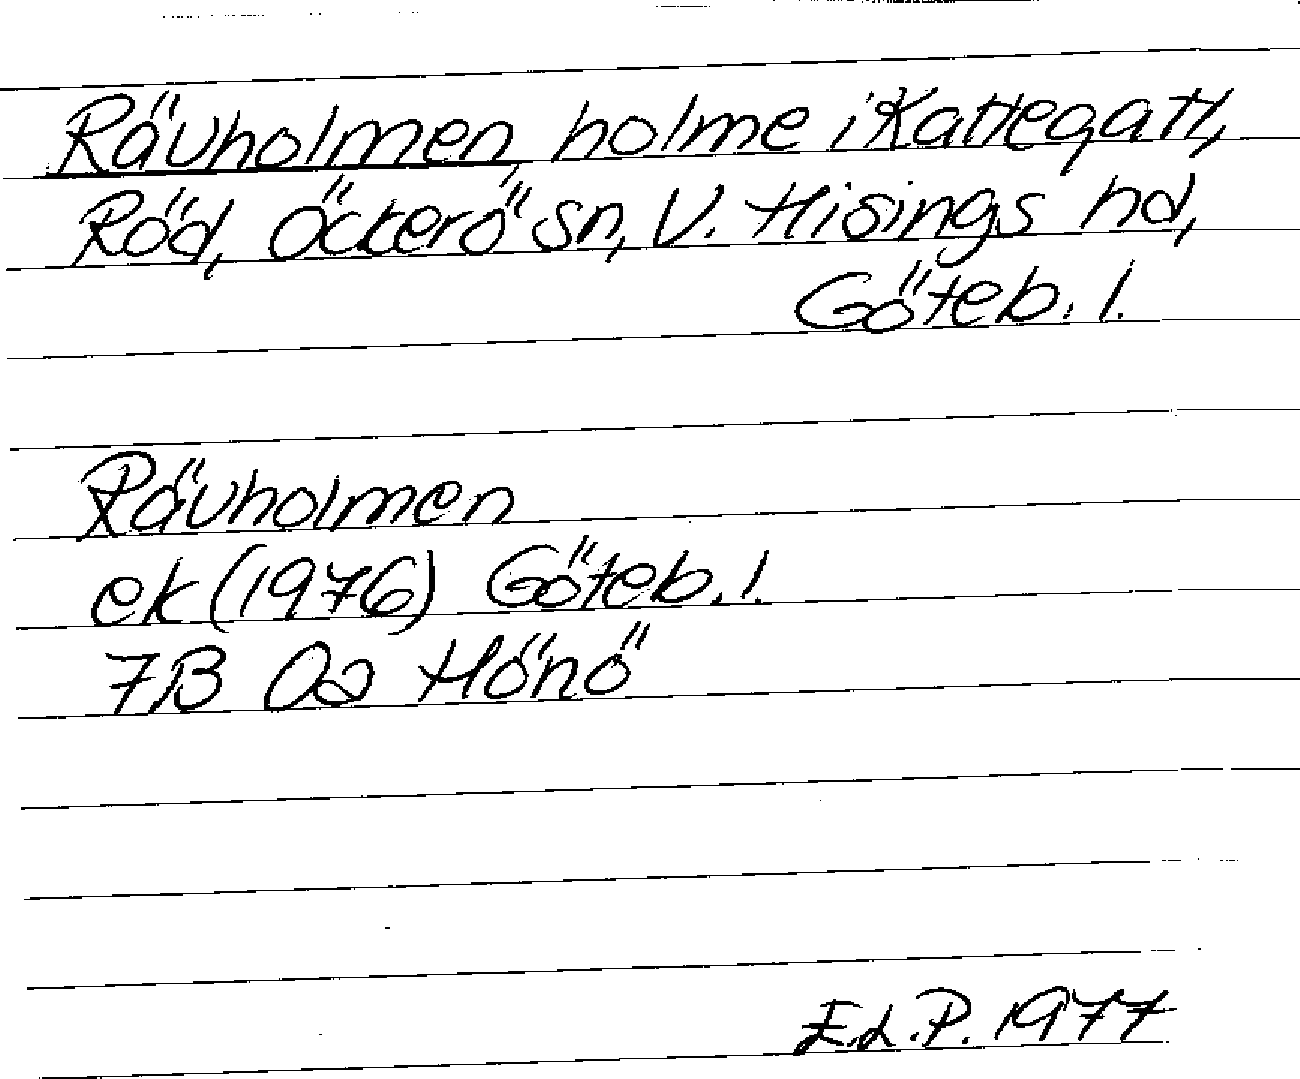 Rävholmen, holme i Kattegatt,
Röd, Öckerö sn, V. Hisings hd,
Göteb. l.
Rävholmen
ek (1976) Göteb. l.
7B 0a Hönö
E.L.P. 1977